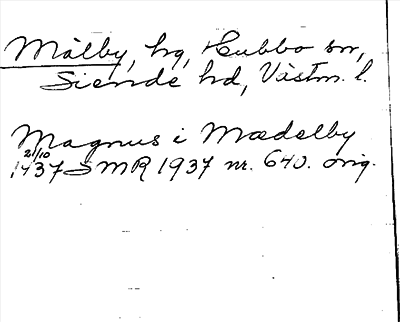 Målby, hg, Hubbo sn,
Siende hd, Västm. l.
Magnus i Mædelby
21/10
1437 SMR 1937 nr. 640. orig.